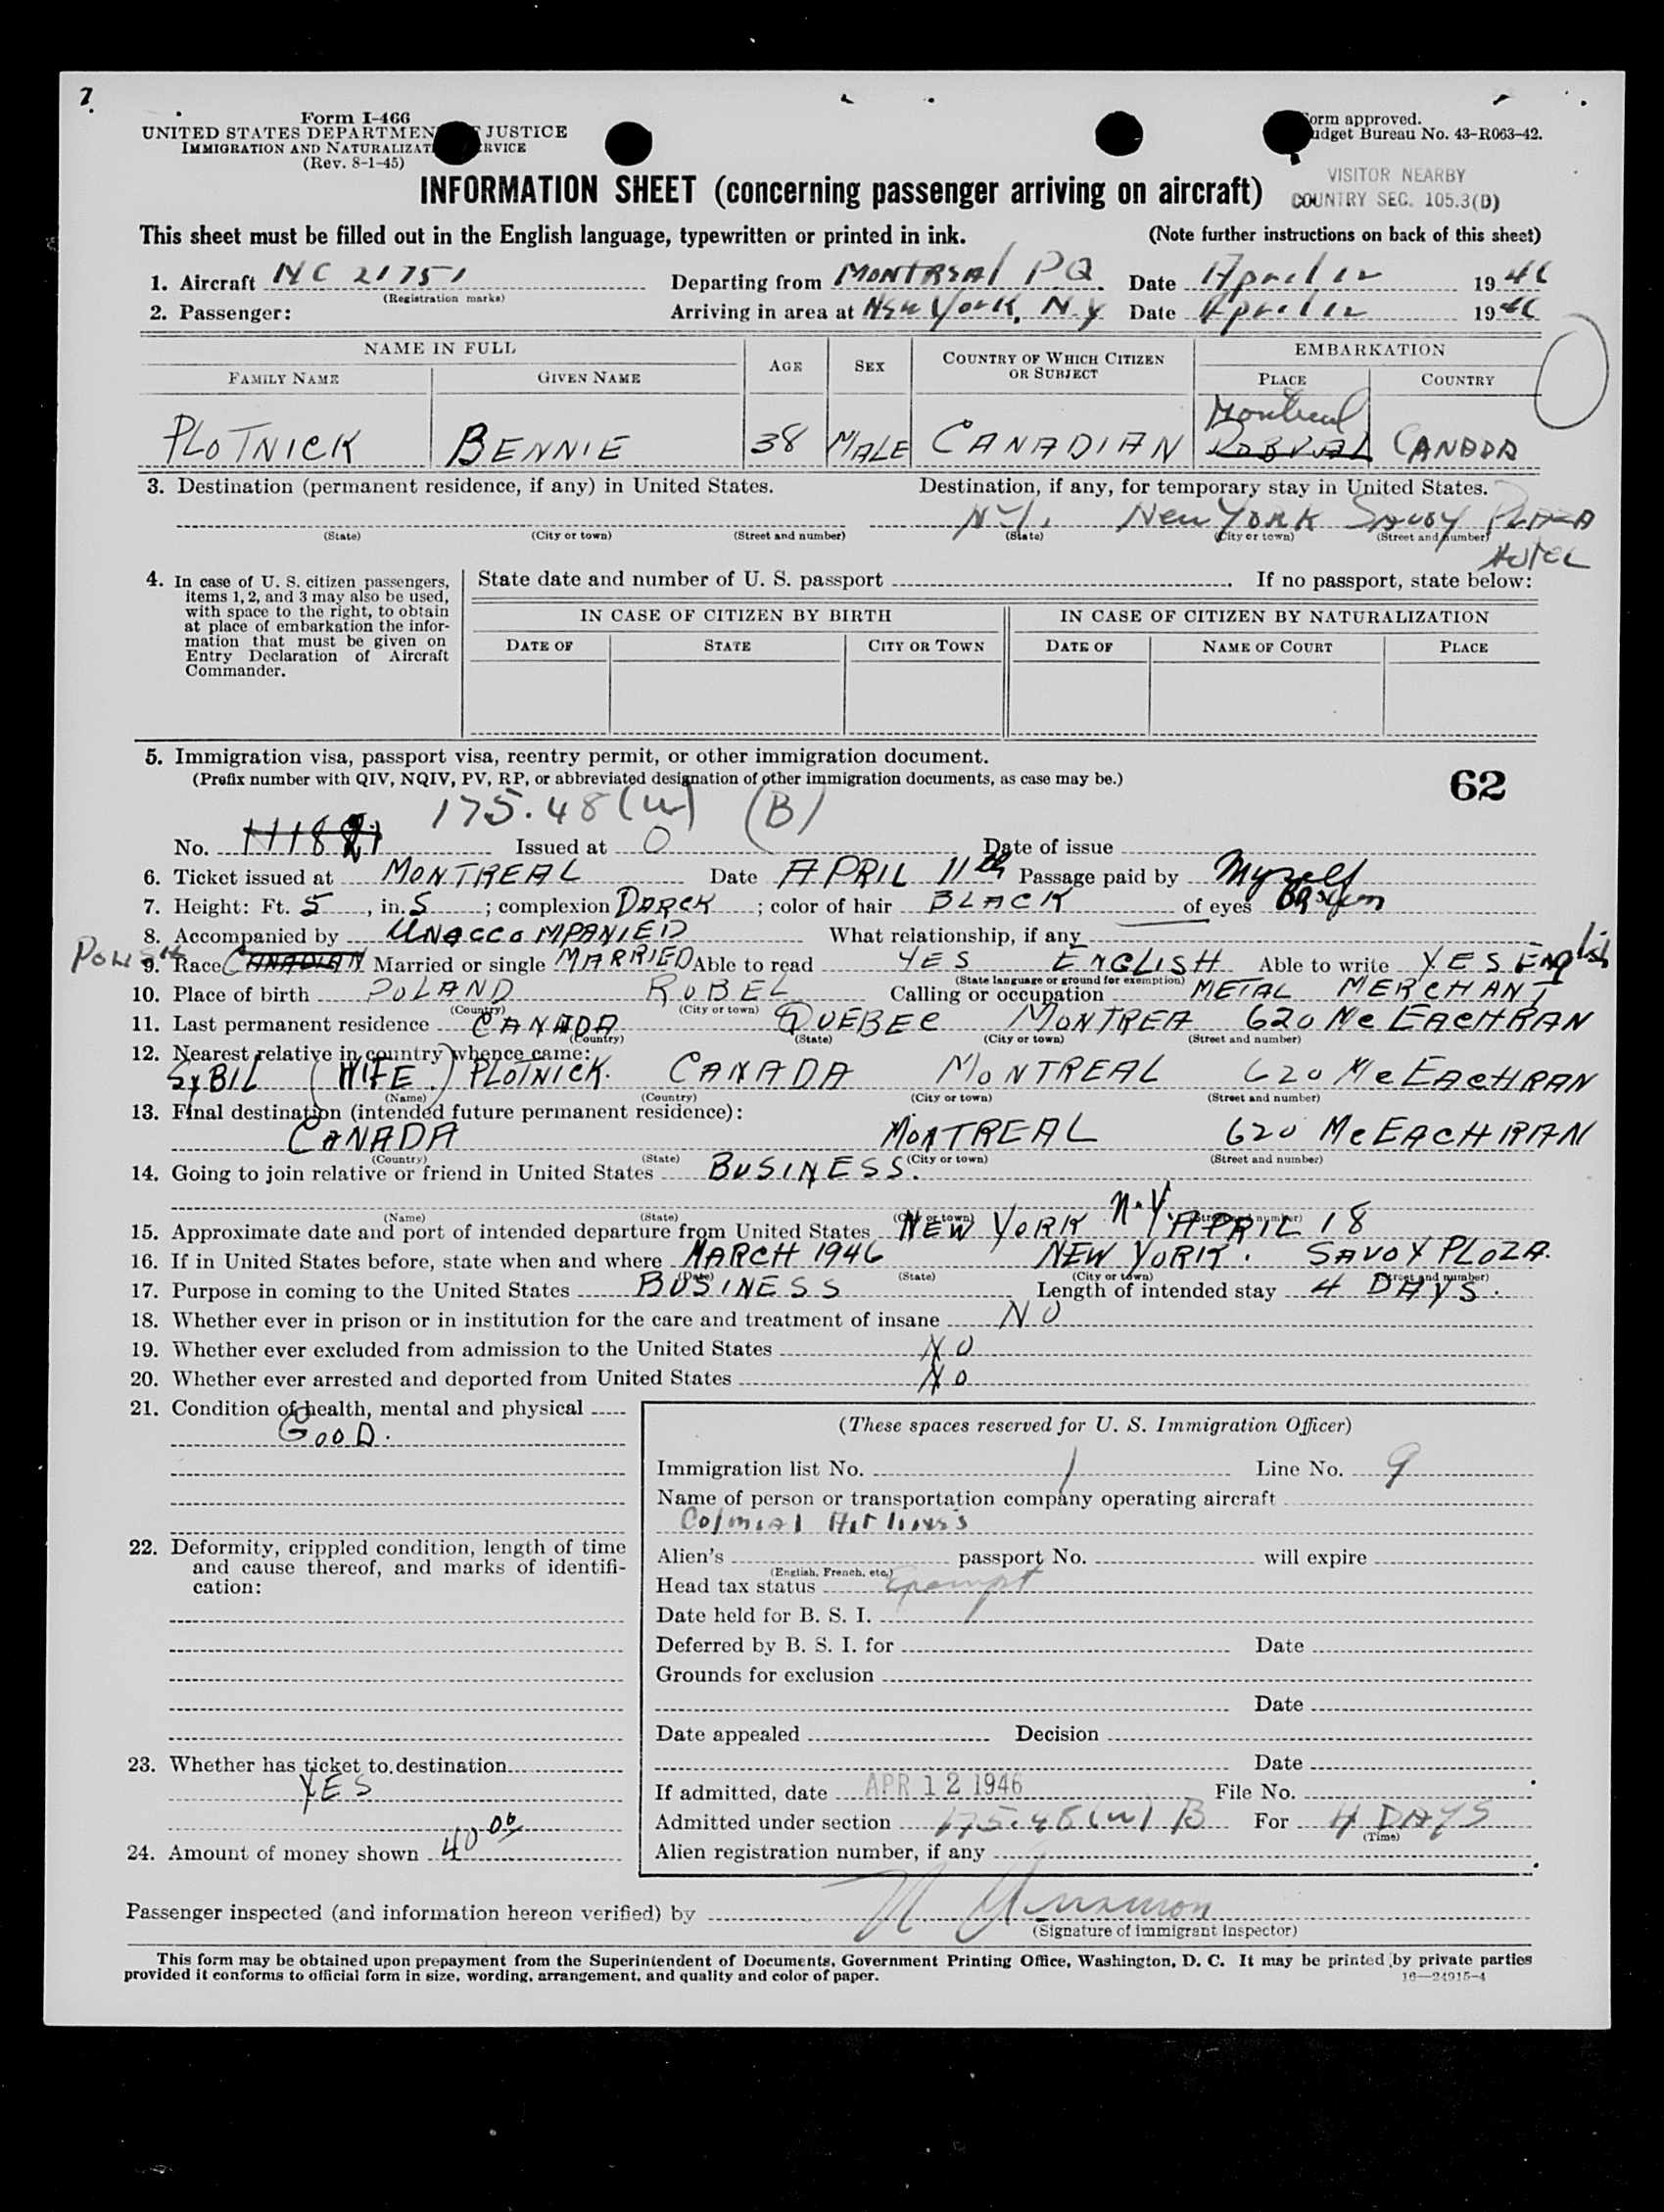 7.
Form I-466
UNITED STATES DEPARTMEN JUSTICE
IMMIGRATION AND NATURALIZAT RVICE
(Rev. 8-1-45)
orm approved.
udget Bureau No. 43-R063-42.
VISITOR NEARBY
COUNTRY SEC. 105.3(D)
INFORMATION SHEET (concerning passenger arriving on aircraft)
This sheet must be filled out in the English language, typewritten or printed in ink. (Note further instructions on back of this sheet)
1. Aircraft NC 21751 Departing from MONTREAL PQ Date April 12 1946
(Registration marks)
2. Passenger: Arriving in area at New York, N.Y Date April 12 1946
NAME IN FULL AGE SEX COUNTRY OF WHICH CITIZEN OR SUBJECT EMBARKATION
FAMILY NAME GIVEN NAME PLACE COUNTRY
Montreal
PLOTNICK BENNIE 38 MALE CANADIAN CANADA
3. Destination (permanent residence, if any) in United States. Destination, if any, for temporary stay in United States.
N.Y. New YORK SAVOY PLAZA
(State) (City or town) (Street and number) (State) (City or town) (Street and number)
HOTEL
4. In case of U. S. citizen passengers, items 1, 2, and 3 may also be used, with space to the right, to obtain at place of embarkation the infor-
mation that must be given on Entry Declaration of Aircraft Commander.
State date and number of U. S. passport If no passport, state below:
IN CASE OF CITIZEN BY BIRTH IN CASE OF CITIZEN BY NATURALIZATION
DATE OF STATE CITY OR TOWN DATE OF NAME OF COURT PLACE
5. Immigration visa, passport visa, reentry permit, or other immigration document.
(Prefix number with QIV, NQIV, PV, RP, or abbreviated designation of other immigration documents, as case may be.)
62
175.48(w) (B)
No. Issued at 0 Date of issue
6. Ticket issued at MONTREAL Date APRIL 11th Passage paid by Myself
7. Height: Ft. 5, in. 5; complexion DARCK; color of hair BLACK of eyes
8. Accompanied by UNACCOMPANIED What relationship, if any
POLISH 9. Race CANADIAN Married or single MARRIED Able to read YES ENGLISH Able to write YES English
(State language or ground for exemption)
10. Place of birth POLAND ROBEL Calling or occupation METAL MERCHANT
(Country) (City or town)
11. Last permanent residence CANADA QUEBEC MONTREA 620 Mc EACHRAN
(Country) (State) (City or town) (Street and number)
12. Nearest relative in country whence came:
SYBIL (WIFE.) PLOTNICK. CANADA MONTREAL 620 McEACHRAN
(Name) (Country) (City or town) (Street and number)
13. Final destination (intended future permanent residence):
CANADA MONTREAL 620 McEACHRAN
(Country) (State) (City or town) (Street and number)
14. Going to join relative or friend in United States BUSINESS.
(Name) (State) (City or town) (Street and number)
15. Approximate date and port of intended departure from United States NEW YORK N.Y. APRIL 18
16. If in United States before, state when and where MARCH 1946 NEW YORK. SAVOY PLOZA.
(Date) (State) (City or town) (Street and number)
17. Purpose in coming to the United States BUSINESS Length of intended stay 4 DAYS.
18. Whether ever in prison or in institution for the care and treatment of insane NO
19. Whether ever excluded from admission to the United States NO
20. Whether ever arrested and deported from United States NO
21. Condition of health, mental and physical
GOOD.
22. Deformity, crippled condition, length of time
and cause thereof, and marks of identifi-
cation:
23. Whether has ticket to destination
YES
24. Amount of money shown 40 00
(These spaces reserved for U. S. Immigration Officer)
Immigration list No. 1 Line No. 9
Name of person or transportation company operating aircraft
Colonial Airlines
Alien's passport No. will expire
(English, French, etc.)
Head tax status Exempt
Date held for B. S. I.
Deferred by B. S. I. for Date
Grounds for exclusion
Date
Date appealed Decision
Date
If admitted, date APR 12 1946 File No.
Admitted under section 175.48(w) B For 4 DAYS
(Time)
Alien registration number, if any
Passenger inspected (and information hereon verified) by
(Signature of immigrant inspector)
This form may be obtained upon prepayment from the Superintendent of Documents, Government Printing Office, Washington, D. C. It may be printed by private parties
provided it conforms to official form in size, wording, arrangement, and quality and color of paper.
16—24915-4